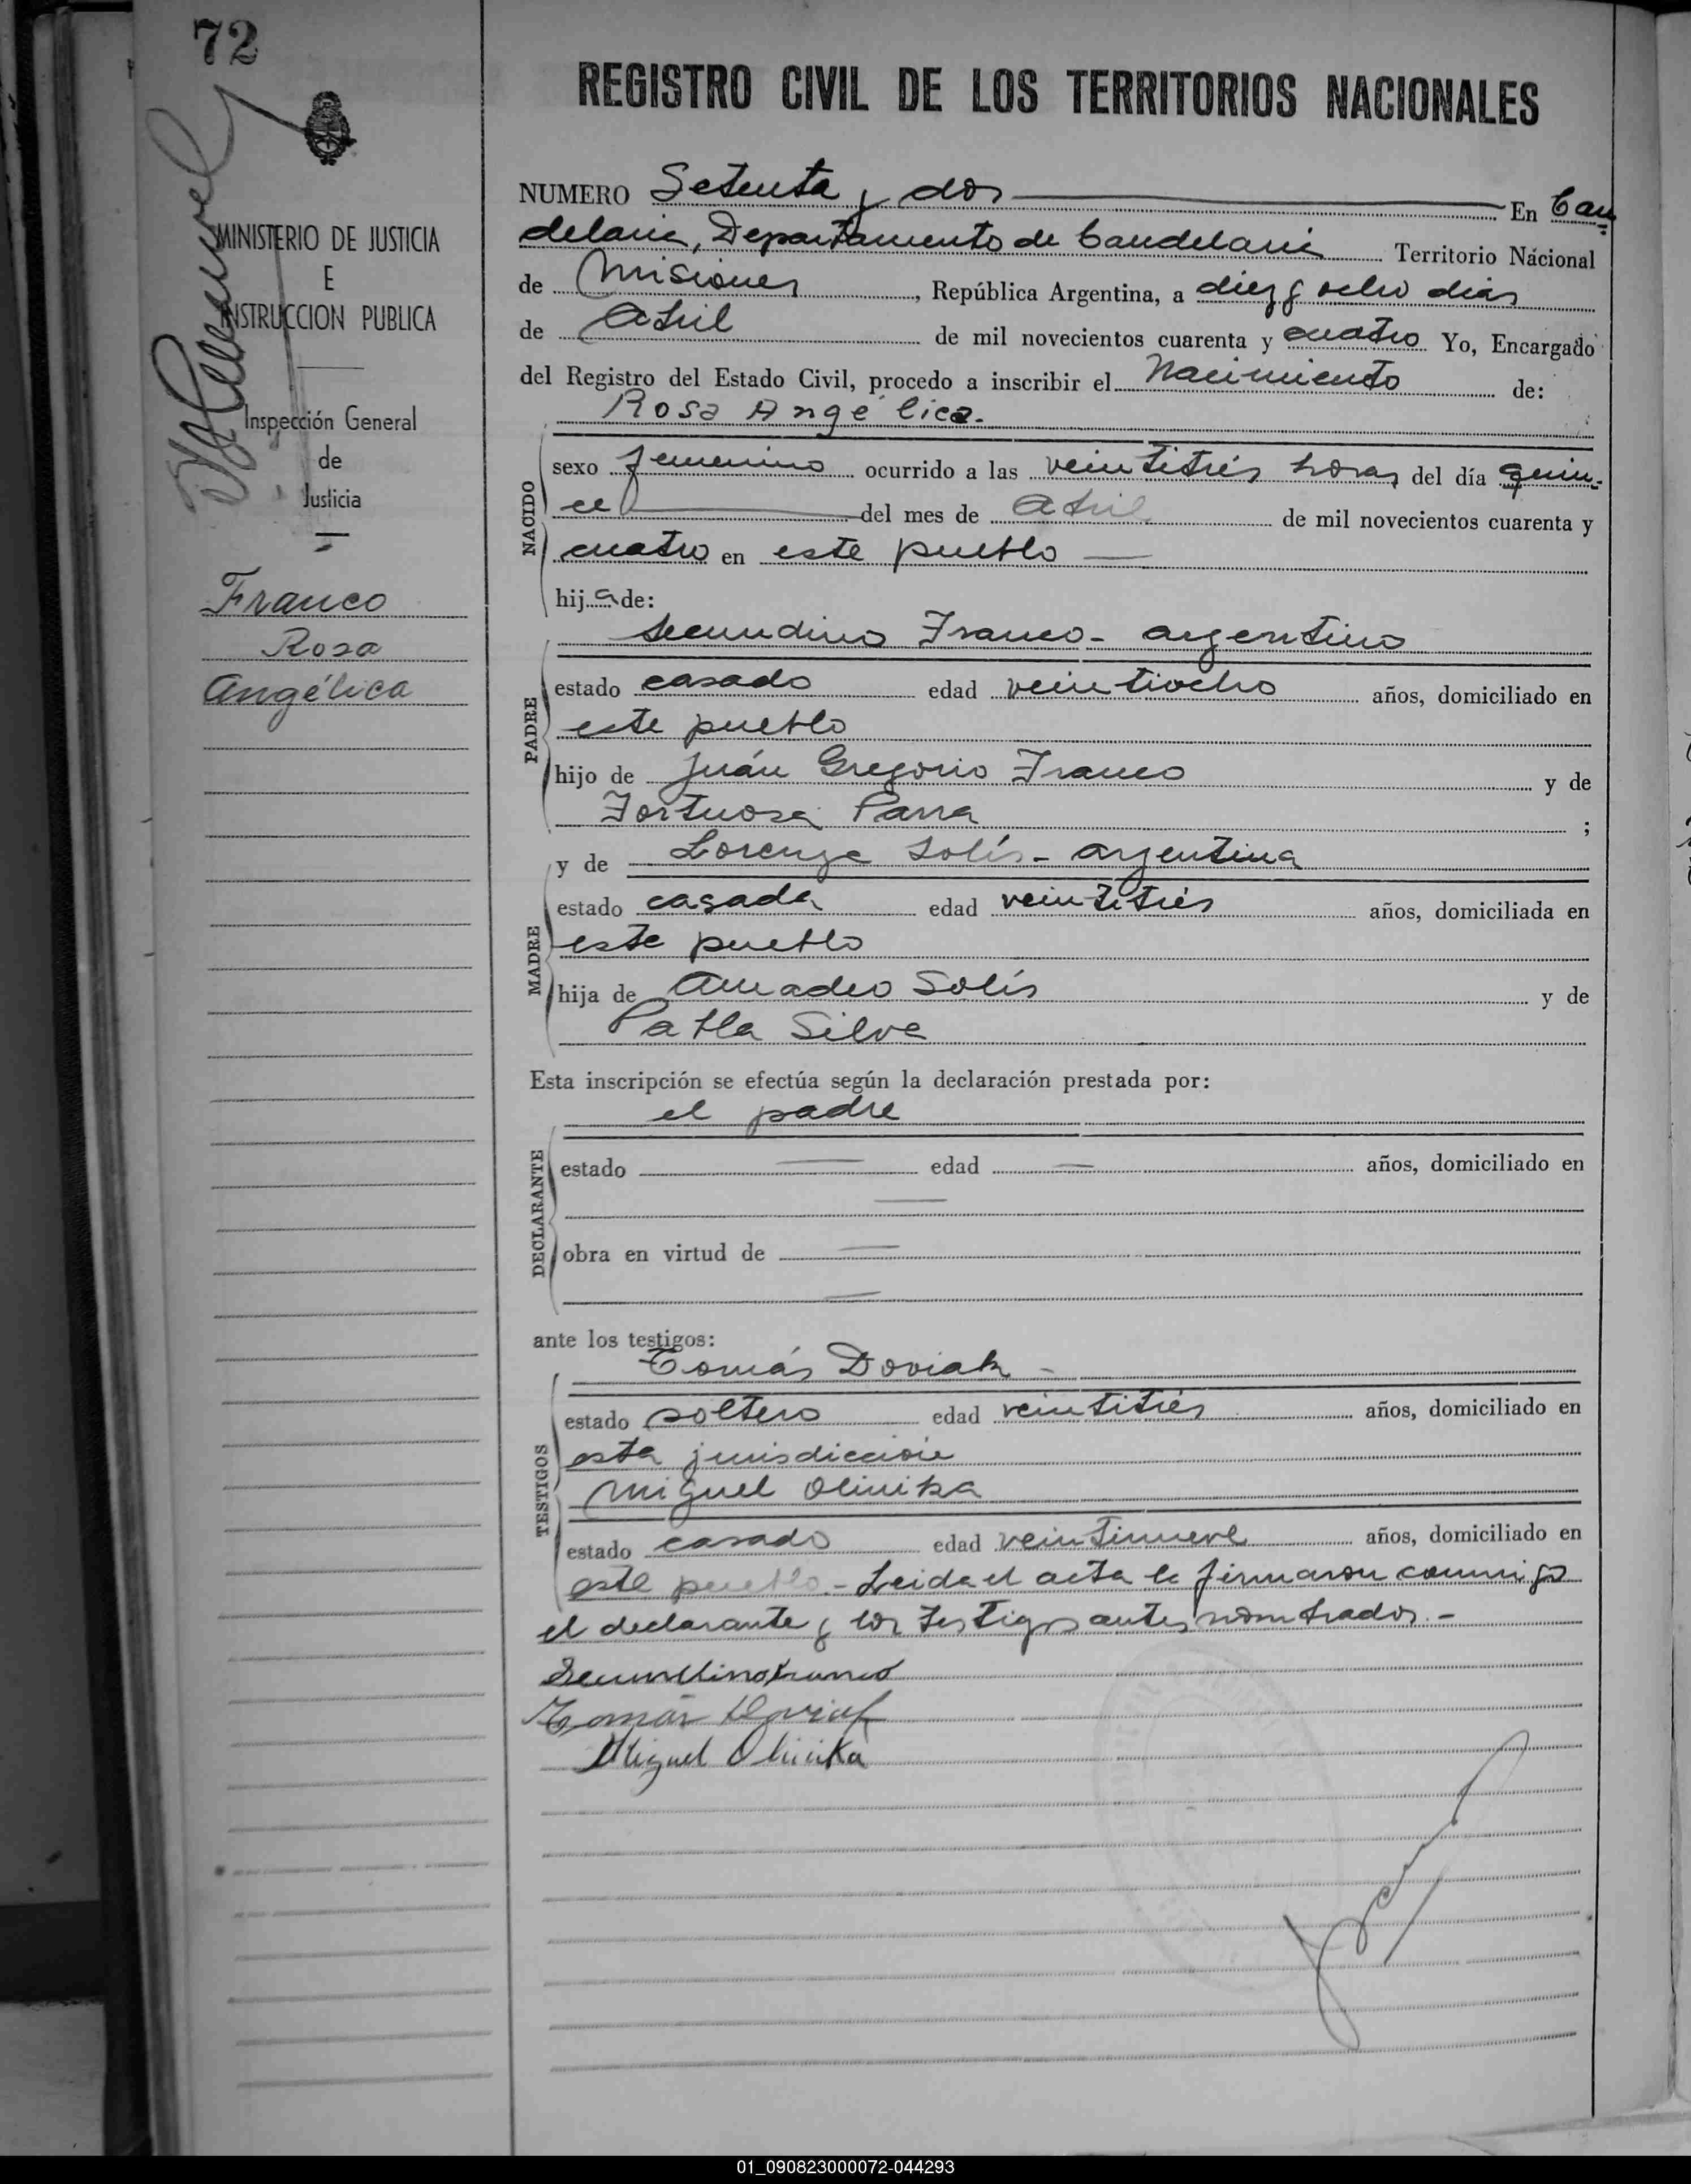 72
MINISTERIO DE JUSTICIA
E
INSTRUCCION PUBLICA
Inspección General
de
Justicia
Franco
Rosa
Angélica
REGISTRO CIVIL DE LOS TERRITORIOS NACIONALES
NUMERO Setenta y dos En Can
delaria, Departamento de Candelaria Territorio Nacional
de Misiones, República Argentina, a diez y ocho días
de Abril de mil novecientos cuarenta y cuatro Yo, Encargado
del Registro del Estado Civil, procedo a inscribir el Nacimiento de:
Rosa Angélica.
NACIDO
sexo femenino ocurrido a las veintitrés horas del día quin-
ce del mes de Abril de mil novecientos cuarenta y
cuatro en este pueblo
hija de:
PADRE
Secundino Franco - argentino
estado casado edad veintiocho años, domiciliado en
este pueblo
hijo de Juán Gregorio Franco y de
Fortuosa Parra ;
MADRE
y de Lorenza Solís - argentina
estado casada edad veintitrés años, domiciliada en
este pueblo
hija de Amadeo Solís y de
Pabla Silva
Esta inscripción se efectúa según la declaración prestada por:
el padre
DECLARANTE
estado — edad — años, domiciliado en
—
obra en virtud de —
—
ante los testigos:
TESTIGOS
Tomás Doviak -
estado soltero edad veintitrés años, domiciliado en
esta jurisdicción
Miguel Olinika
estado casado edad veintinueve años, domiciliado en
este pueblo.- Leida el acta la firmaron conmigo
el declarante y los testigos antes nombrados.-
Secundino Franco
Tomás Doviak
Miguel Olinika
01_090823000072-044293